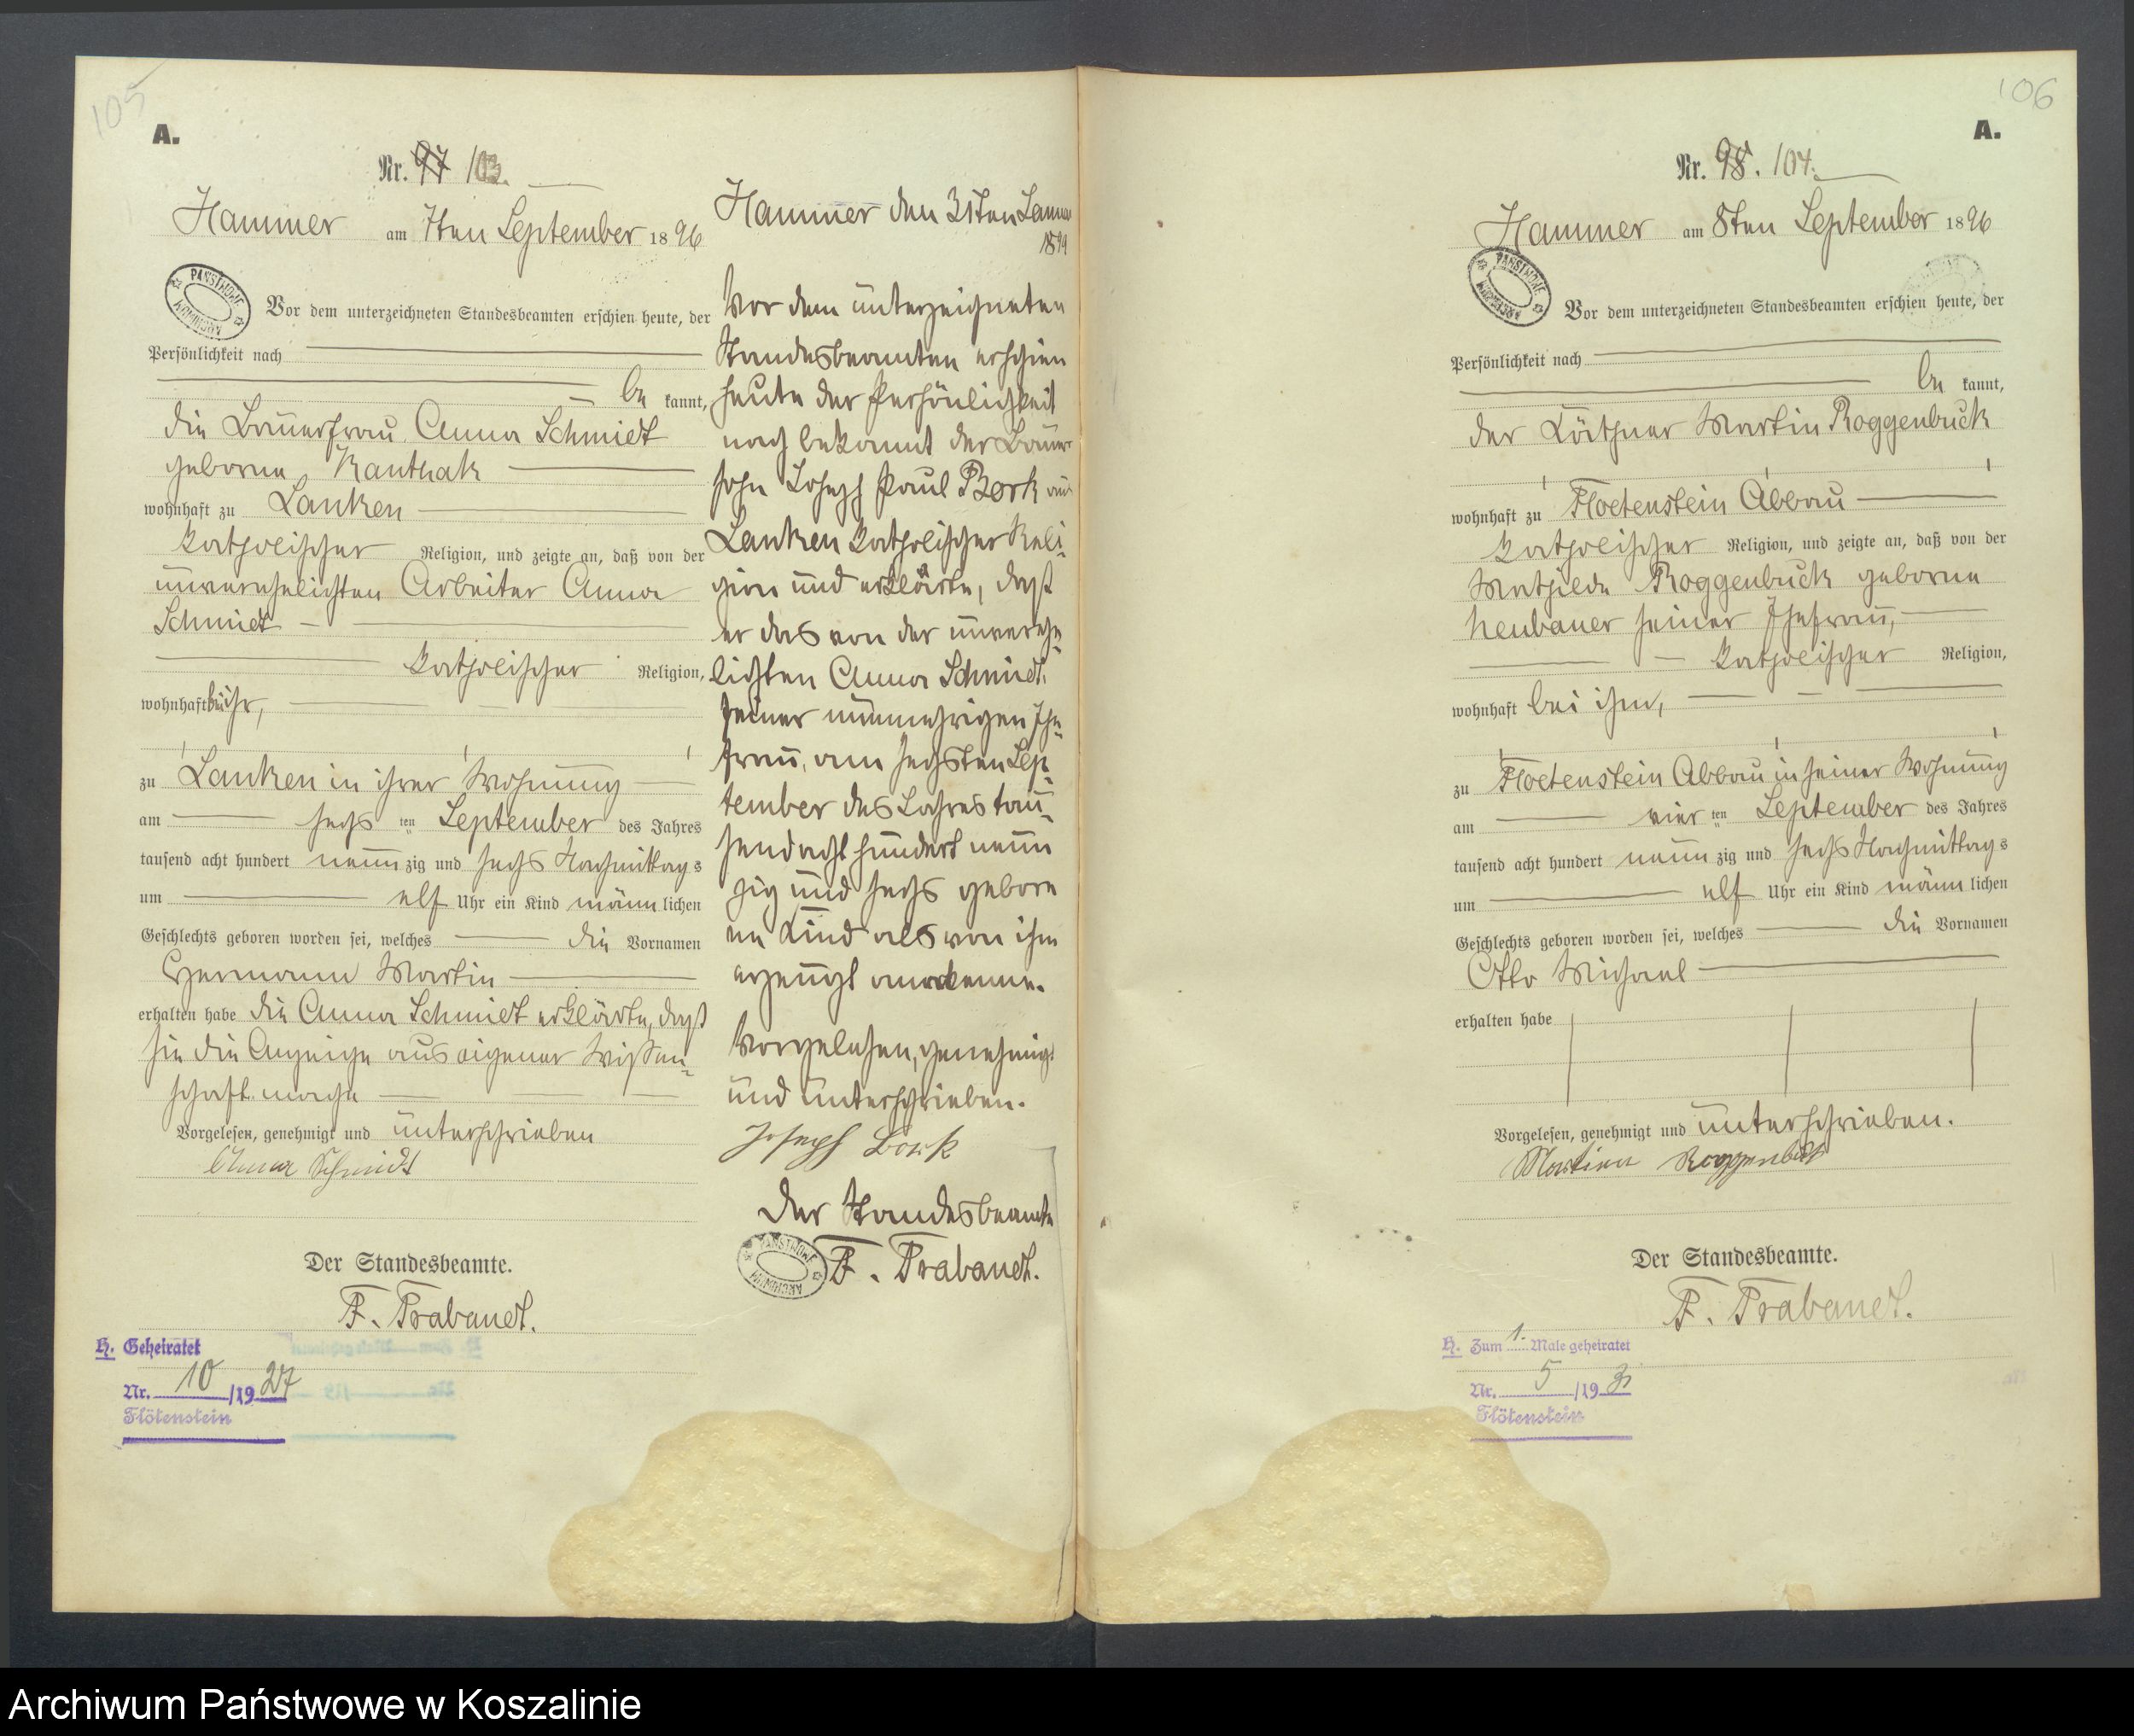 105
A.
Nr. 97 103.
Hammer am 7ten September 1896
PAŃSTWOWE ARCHIWUM
Vor dem unterzeichneten Standesbeamten erschien heute, der
Persönlichkeit nach
be kannt,
die Bauerfrau Anna Schmidt
geborne Kanthak
wohnhaft zu Lanken
katholischer Religion, und zeigte an, daß von der
unverehelichten Arbeiter Anna
Schmidt
katholischer Religion,
wohnhaft bei ihr,
zu Lanken in ihrer Wohnung
am sechs ten September des Jahres
tausend acht hundert neun zig und sechs Nachmittags
um elf Uhr ein Kind männ lichen
Geschlechts geboren worden sei, welches die Vornamen
Hermann Martin
erhalten habe die Anna Schmidt erklärte, daß
sie die Anzeige aus eigener Wissen-
schaft mache
Vorgelesen, genehmigt und unterschrieben
Anna Schmidt
Der Standesbeamte.
F. Trabandt.
H. Geheiratet
Nr. 10 /1927
Flötenstein
Hammer den 31ten Januar
Vor dem unterzeichneten
Standesbeamten erschien
heute der Persönlichkeit
nach bekannt der Bauer
sohn Joseph Paul Bork aus
Lanken katholischer Reli-
gion und erklärte, daß
er das von der unverehe-
lichten Anna Schmidt,
seiner nunmehrigen Ehe-
frau, am sechsten Sep-
tember des Jahres tau-
sendachthundert neun
zig und sechs gebore
ne Kind als von ihm
erzeugt anerkenne.
Vorgelesen, genehmigt
und unterschrieben.
Joseph Bork
Der Standesbeamte
PAŃSTWOWE ARCHIWUM
F. Trabandt.
106
A.
Nr. 98. 104.
Hammer am 8ten September 1896
PAŃSTWOWE ARCHIWUM
Vor dem unterzeichneten Standesbeamten erschien heute, der
Persönlichkeit nach
be kannt,
der Käthner Martin Roggenbuck
wohnhaft zu Floetenstein Abbau
katholischer Religion, und zeigte an, daß von der
Mathilde Roggenbuck geborne
Neubauer seiner Ehefrau,
katholischer Religion,
wohnhaft bei ihm,
zu Floetenstein Abbau in seiner Wohnung
am vier ten September des Jahres
tausend acht hundert neun zig und sechs Nachmittags
um elf Uhr ein Kind männ lichen
Geschlechts geboren worden sei, welches die Vornamen
Otto Michael
erhalten habe
Vorgelesen, genehmigt und unterschrieben.
Martin Roggenbuck
Der Standesbeamte.
F. Trabandt.
H. Zum 1. Male geheiratet
Nr. 5 /19
Flötenstein
Archiwum Państwowe w Koszalinie